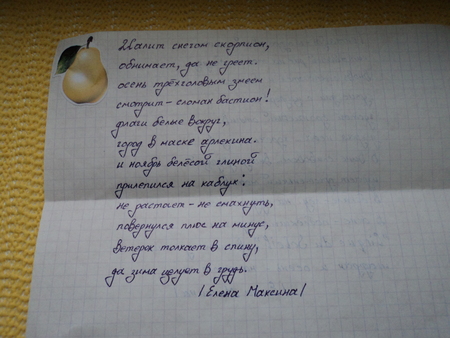 Жалит снегом скорпион,
обнимает, да не греет.
осень трёхголовым змеем
смотрит - сломан бастион!
флаги белые вокруг,
город в маске арлекина.
и ноябрь белёсой глиной
прилепился на каблук:
не растает - не смахнуть,
повернулся плюс на минус,
ветерок толкает в спину,
да зима целует в грудь.
/Елена Максина/